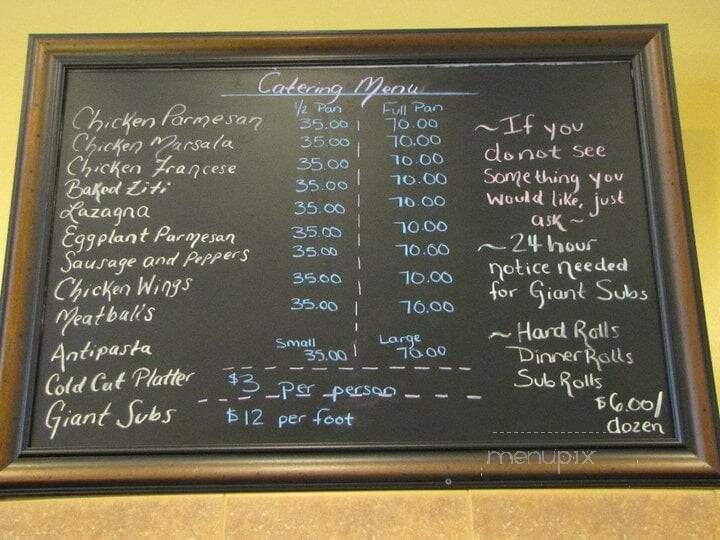 Catering Menu
½ Pan Full Pan
Chicken Parmesan 35.00 | 70.00
Chicken Marsala 35.00 | 70.00
Chicken Francese 35.00 | 70.00
Baked Ziti 35.00 | 70.00
Lazagna 35.00 | 70.00
Eggplant Parmesan 35.00 | 70.00
Sausage and Peppers 35.00 | 70.00
Chicken Wings 35.00 | 70.00
Meatball's 35.00 | 70.00
Small Large
Antipasta 35.00 | 70.00
Cold Cut Platter $3 per person
Giant Subs $12 per foot
~ If you
do not see
Something you
would like, just
ask ~
~ 24 hour
notice needed
for Giant Subs
~ Hard Rolls
Dinner Rolls
Sub Rolls
$6.00/
dozen
menupix